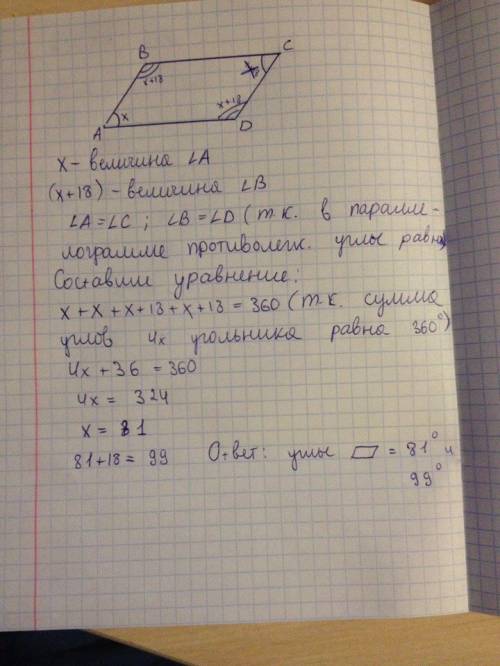 B
C
x+18
x
x+18
x
A
D
x - величина ∠A
(x+18) - величина ∠B
∠A=∠C ; ∠B=∠D (т.к. в паралле-
лограмме противолеж. углы равны)
Составим уравнение:
x + x + x + 18 + x + 18 = 360 (т.к. сумма
углов 4х угольника равна 360°)
4x + 36 = 360
4x = 324
x = 81
81+18 = 99 Ответ: углы ▱ = 81° и
99°